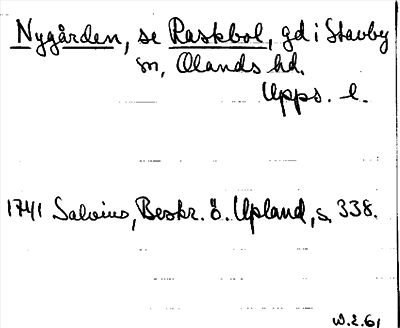 Nygården, se Raskbol, gd i Stavby
sn, Olands hd.
Upps. l.
1741 Salvius, Beskr. ö. Upland, s. 338.
W.E.61